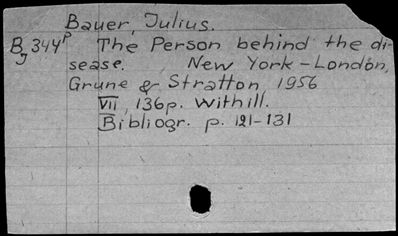 Bauer, Julius.
B J 344 P The Person behind the di-
sease. New York-London,
Grune & Stratton, 1956
VII, 136p. With ill.
Bibliogr. p. 121-131